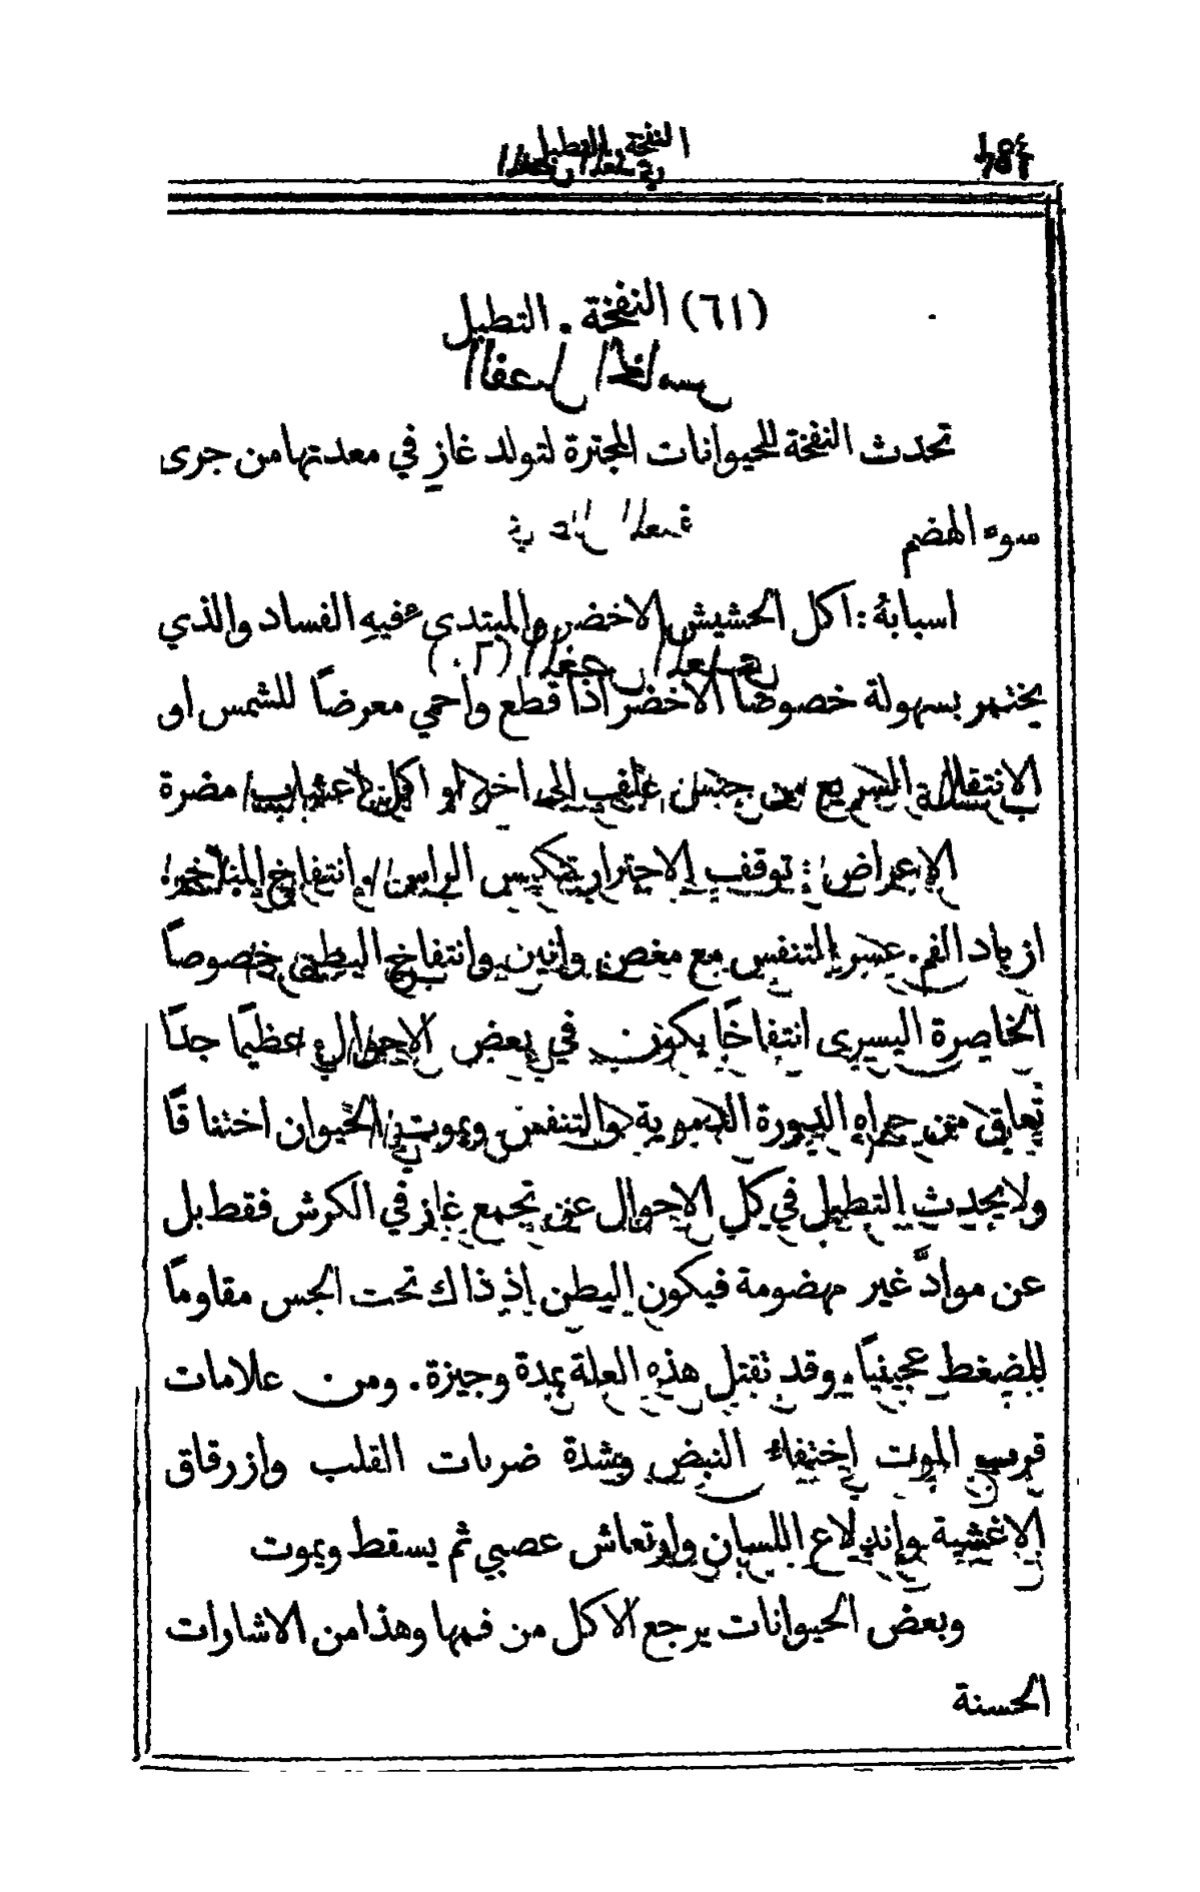 النفخة. التطبل
(٦١) النفخة. التطبل
تحدث النفخة للحيوانات المجترة لتولد غاز في معدتها من جرى
سوء الهضم
اسبابهُ: اكل الحشيش الاخضر والمبتدىء فيهِ الفساد والذي
يختمر بسهولة خصوصًا الاخضر اذا قطع واحمي معرضًا للشمس او
الانتقال السريع من جنس علف الى اخر او اكل اعشاب مضرة
الاعراض: توقف الاجترار تنكيس الراس. انتفاخ المناخر.
ازباد الفم. عسر التنفس مع مغص وانين وانتفاخ البطن خصوصًا
الخاصرة اليسرى انتفاخًا يكون في بعض الاحوال عظيمًا جدًا
تعاق من جراه الدورة الدموية والتنفس ويموت الحيوان اختناقًا
ولا يحدث التطبل في كل الاحوال عن تجمع غاز في الكرش فقط بل
عن موادَّ غير مهضومة فيكون البطن إذ ذاك تحت الجس مقاومًا
للضغط عجينيًا. وقد تقتل هذه العلة بمدة وجيزة. ومن علامات
قرب الموت اختفاء النبض وشدة ضربات القلب وازرقاق
الاغشية واندلاع اللسان وارتعاش عصبي ثم يسقط ويموت
وبعض الحيوانات يرجع الاكل من فمها وهذا من الاشارات
الحسنة